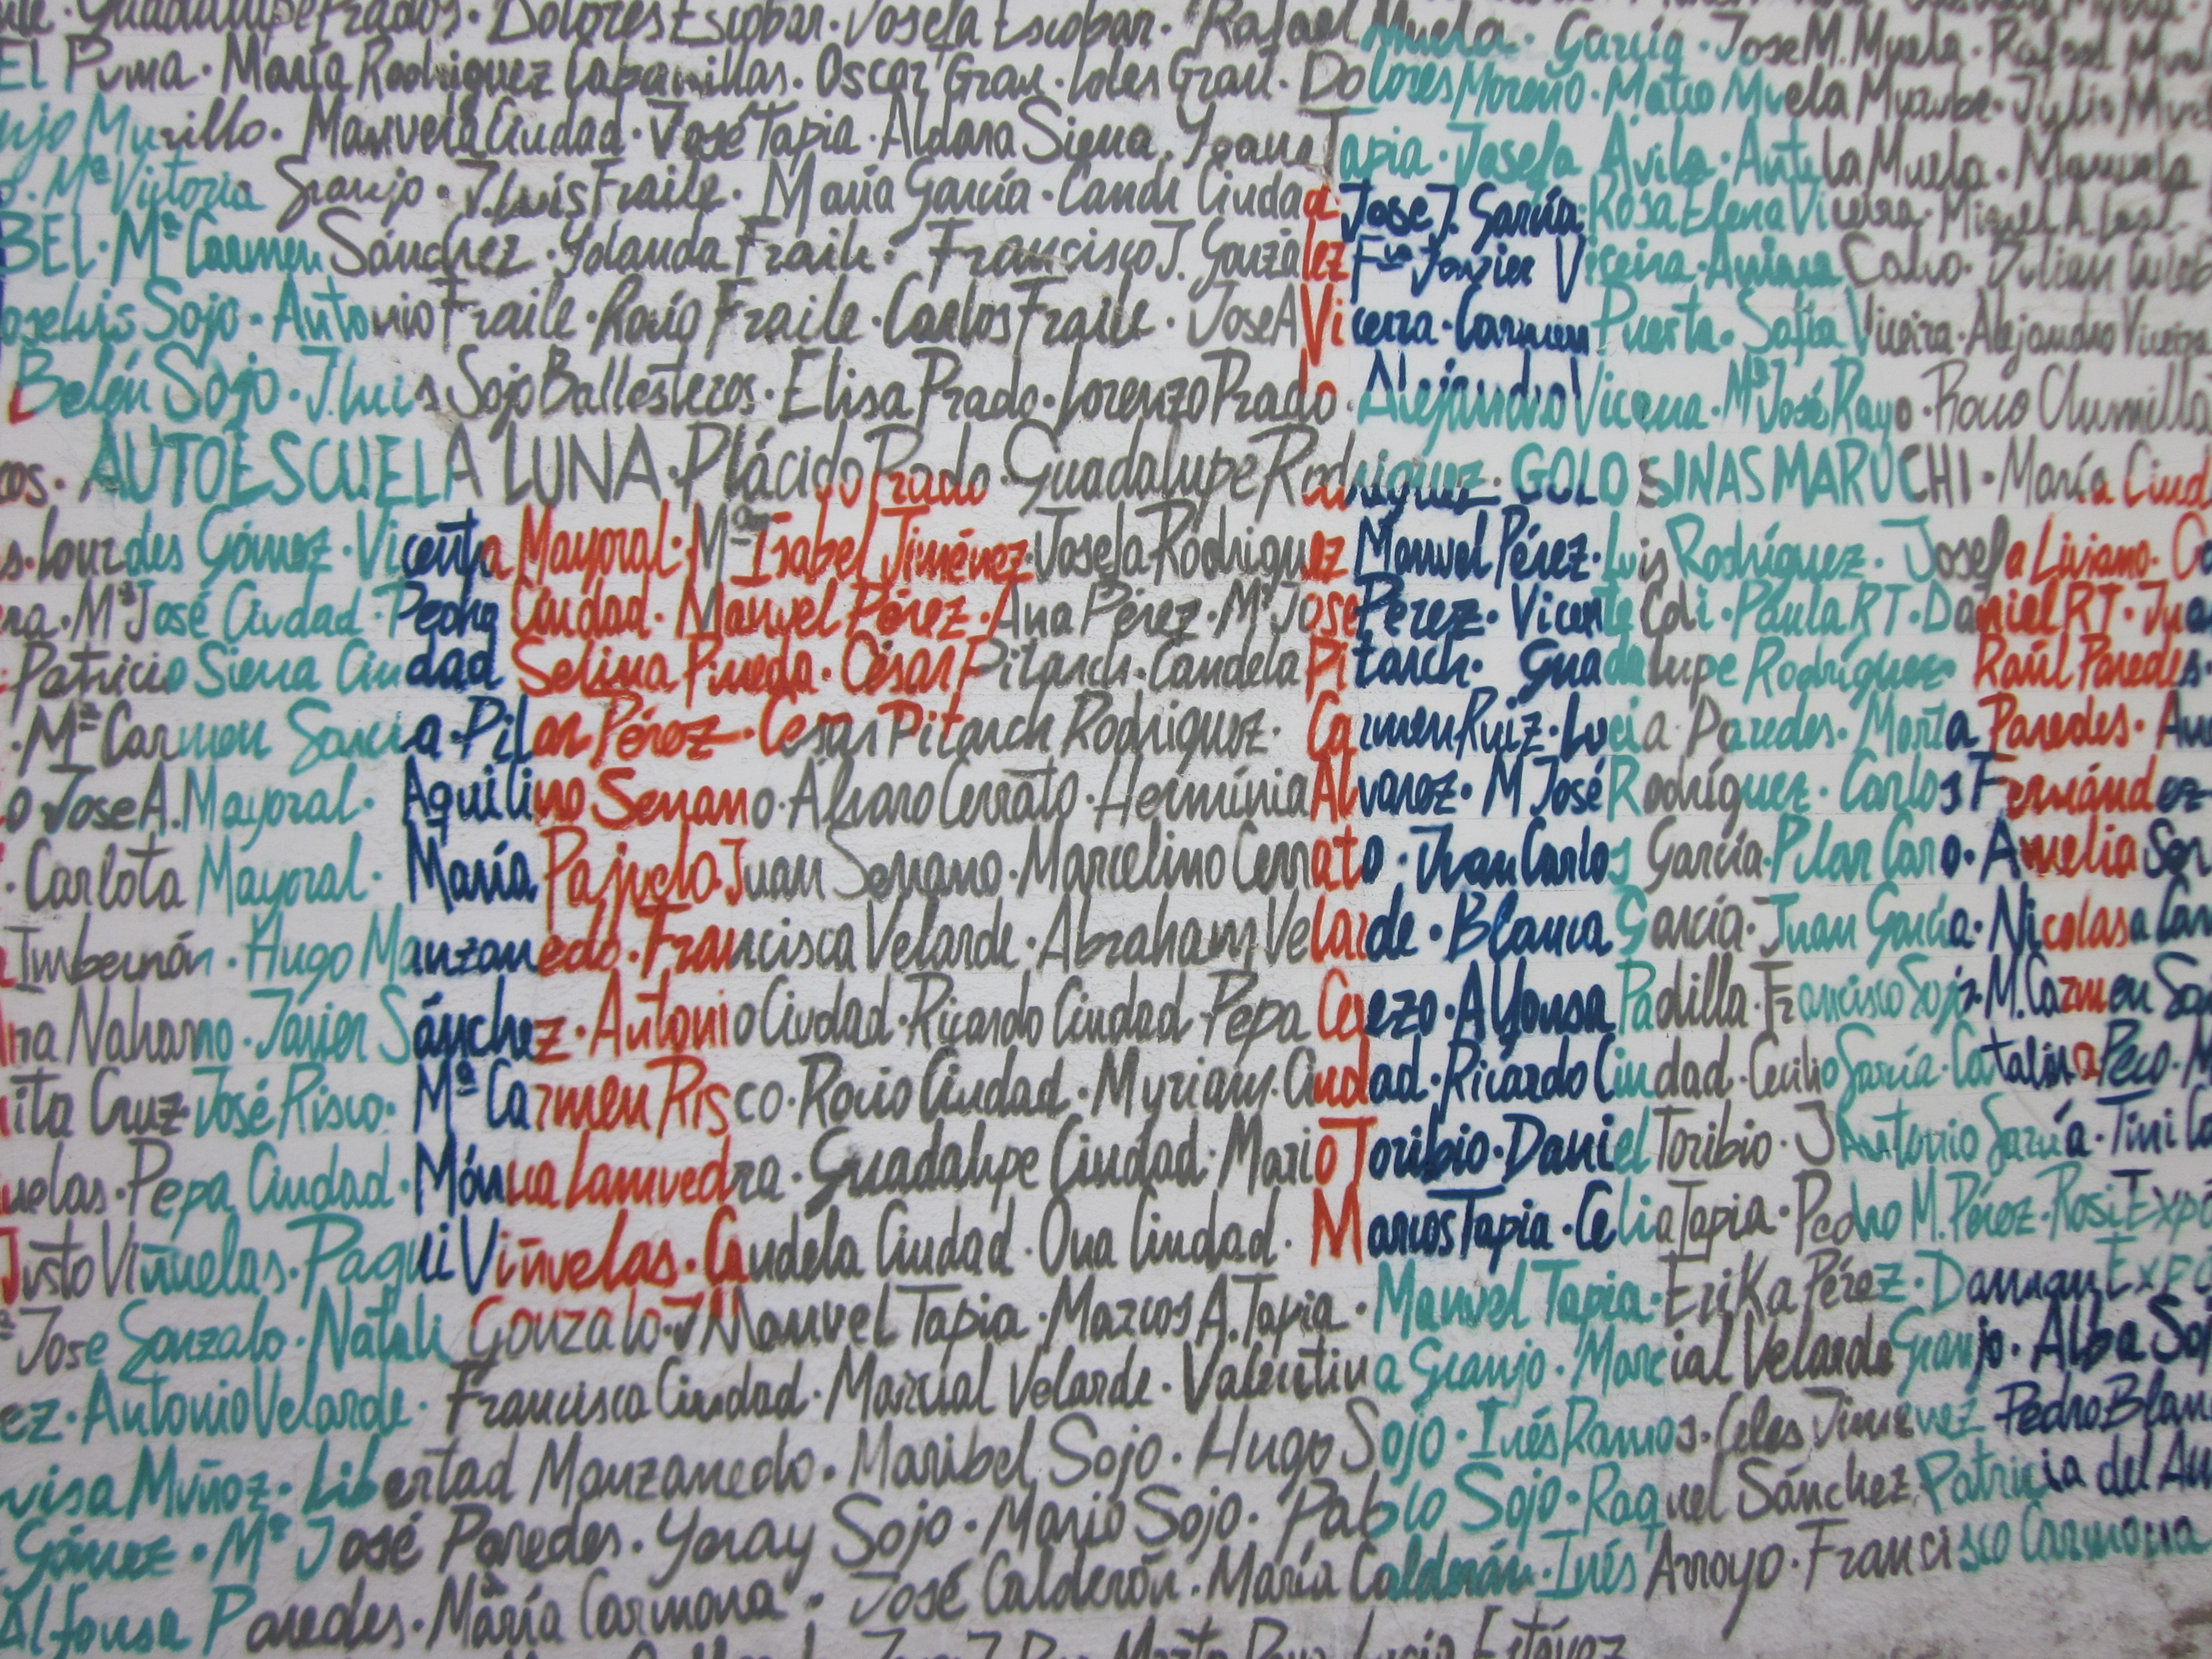 Guadalupe Prados · Dolores Escobar · Josefa Escobar · Rafael Muela · García · Jose M. Muela · Rafael
El Puma · María Rodríguez Cabanillas · Oscar Grau · Loles Grau · Dolores Moreno · Mateo Muela Muzube · Julio
Murillo · Manuela Ciudad · José Tapia · Aldara Sierra · Yoana Tapia · Josefa Ávila · Muela · Manuela
Mª Victoria Granjo · J. Luis Fraile · María García · Cande Ciudad · Jose J. García · Rosa Elena Viceira · Miguel A.
BEL · Mª Carmen Sánchez · Yolanda Fraile · Francisco J. González · Fco Javier Viceira · Calvo · Julian
Joseluis Sojo · Antonio Fraile · Rocío Fraile · Carlos Fraile · Jose A Viceira · Carmen Puerta · Sofía Viceira · Alejandro Viceira
Belén Sojo · J. Luis Sojo Ballesteros · Elisa Prado · Lorenzo Prado · Alejandro Viceira · Mª José Rayo · Rocio Chumilla
cos · AUTOESCUELA LUNA · Plácido Prado · Guadalupe Rodríguez · GOLOSINAS MARUCHI · María Ciud
s · Lourdes Gómez · Vicenta Mayoral · Mª Isabel Jiménez · Josefa Rodríguez Manuel Pérez · Luis Rodríguez · Josefa Liviano ·
ra · Mª José Ciudad · Pedro Ciudad · Manuel Pérez · Ana Pérez · Mª Jose Pérez · Vicente Coli · Paula RT · Daniel RT ·
Patricio Sierra Ciudad Selina Pineda · César Pitarch · Candela Pitarch · Guadalupe Rodríguez · Raúl Paredes
· Mª Carmen García · Pilar Pérez · Cesar Pitarch Rodríguez · Carmen Ruiz · Lucia Paredes · Marta Paredes ·
o Jose A. Mayoral · Aquilino Serrano · Álvaro Cerrato · Herminia Alvarez · M José Rodríguez · Carlos Fernández
· Carlota Mayoral · María Pajuelo Juan Serrano · Marcelino Cerrato · Juan Carlos García · Pilar Caro · Amelia Ser
Imbernón · Hugo Manzanedo · Francisca Velarde · Abraham Velarde · Blanca García · Juan García · Nicolasa
Naharro · Javier Sánchez · Antonio Ciudad · Ricardo Ciudad · Pepa Cerezo · Alfonsa Padilla · Francisco Sojo · M. Carmen
ita Cruz José Risco · Mª Carmen Risco · Rocio Ciudad · Myriam Ciudad · Ricardo Ciudad · Cecilio García · Catalina Peco · M
uelas · Pepa Ciudad · Mónica Lamuedra · Guadalupe Ciudad · Mario Toribio · Daniel Toribio · J Antonio García · Tini
Justo Viñuelas · Paqui Viñuelas · Candela Ciudad · Ona Ciudad · Marcos Tapia · Celia Tapia · Pedro M. Pérez · Rosi Exp
Jose Gonzalo · Natali Gonzalo · J Manuel Tapia · Marcos A. Tapia · Manuel Tapia · Erika Pérez ·
ez · Antonio Velarde · Francisca Ciudad · Marcial Velarde · Valentina Granjo · Marcial Velarde Granjo · Alba
uisa Muñoz · Libertad Manzanedo · Maribel Sojo · Hugo Sojo · Inés Ramos · Celes Jimenez Pedro Blan
Gómez · Mª José Paredes · Yeray Sojo · Mario Sojo · Pablo Sojo · Raquel Sánchez · Patricia del
Alfonsa Paredes · María Carmona · José Calderón · María Calderón · Inés Arroyo · Francisco Carmona
Lucia Estévez